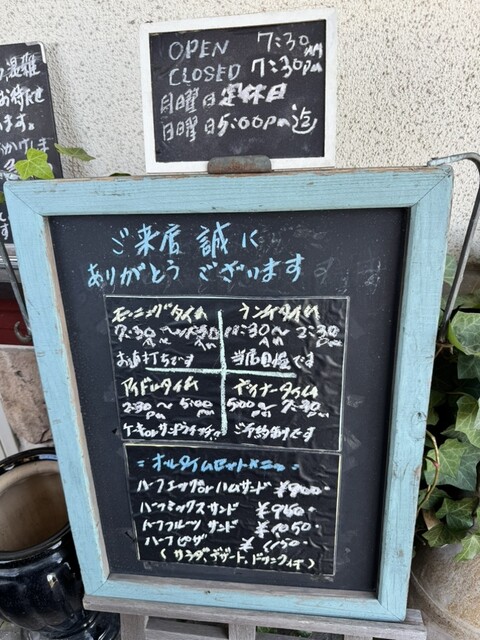 OPEN 7:30 AM
CLOSED 7:30pm
月曜日定休日
日曜日5:00pm迄
お待たせ
ます。
ご来店 誠に
ありがとう ございます
モーニングタイム
7:30~
お値打ちです
ランチタイム
~2:30 PM
当店自慢です
アイドルタイム
2:30~5:00 pm
ケーキorサンドウィッチ
ディナータイム
5:00~7:30 pm
ご予約制です
=オールタイムセットメニュー=
ハーフエッグorハムサンド ¥900-
ハーフミックスサンド ¥950-
ハーフフルーツ サンド ¥1050-
ハーフピザ ¥1150-
(サラダ、デザート、ドリンク付)